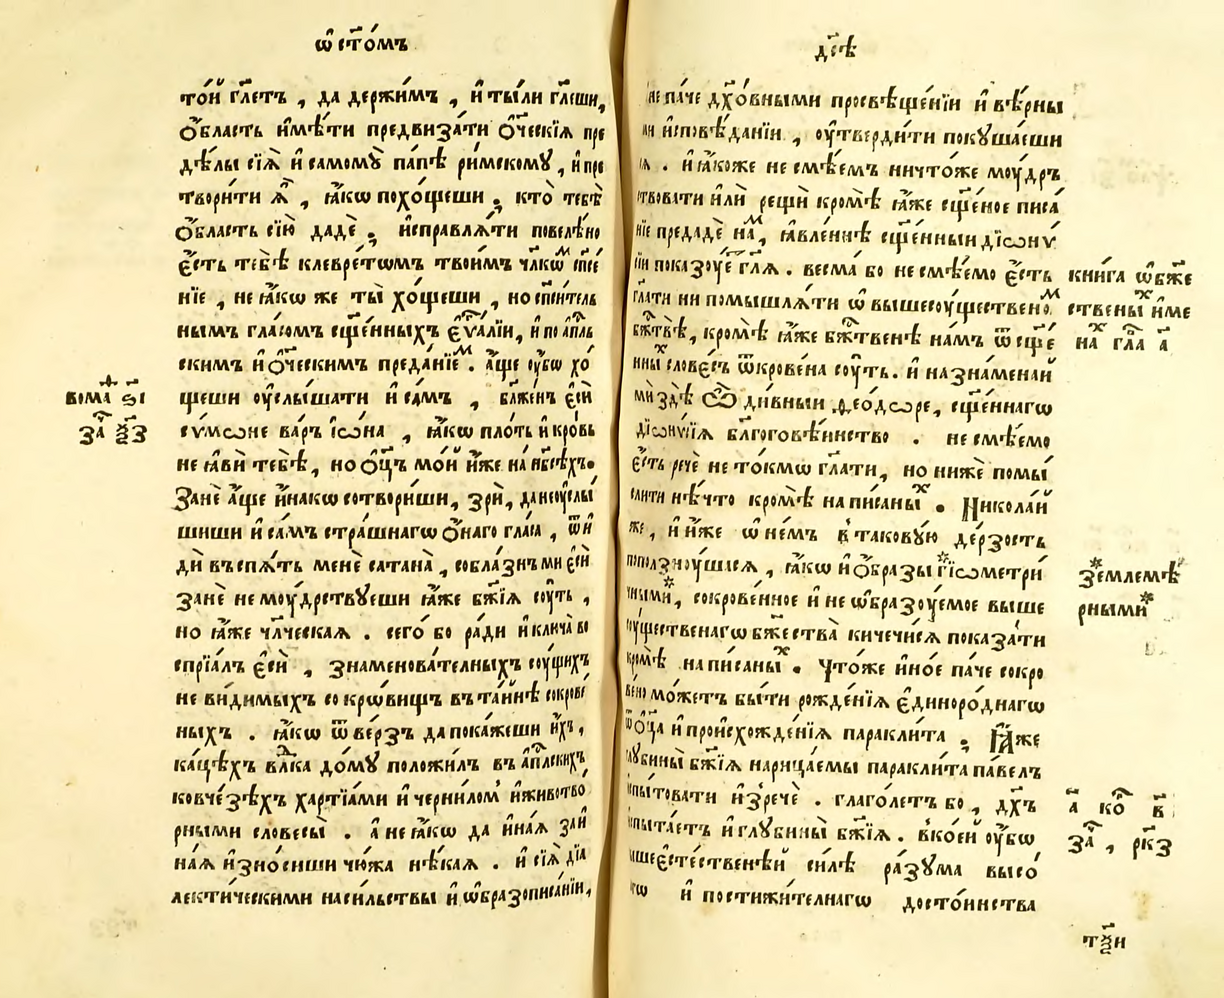 ѡ҆ ст҃о́мъ
то́й гл҃етъ , да держи́мъ , и҆ ты́ ли гл҃еши,
ѻ҆́бласть и҆мѣ́ти предвиза́ти ѻ҆́ческїѧ пре
дѣ́лы сїѧ̀ и҆ самомꙋ̀ па́пѣ ри́мскомꙋ , и҆ пре
твори́ти ѧ҆̀ , ꙗ҆́кѡ похо́щеши ; кто̀ тебѣ̀
ѻ҆́бласть сїю̀ дадѐ ; и҆справлѧ́ти повелѣ́но
є҆́сть тебѣ̀ клевре́тѡмъ твои́мъ чл҃кѡⷨ сп҃се́
нїе , не ꙗ҆́кѡ же ты̀ хо́щеши , но сп҃си́тель
нымъ гла́сомъ сщ҃е́нныхъ є҆ѵⷢ҇а́лїи, и҆ по а҆пⷭ҇ль
скимъ и҆ ѻ҆́ческимъ преда́нїеⷨ . а҆́ще ᲂу҆́бѡ хо́
щеши ᲂу҆слы́шати и҆ са́мъ , бл҃же́нъ є҆сѝ
сѵ́мѡне ва́ръ і҆ѡ́на , ꙗ҆́кѡ пло́ть и҆ кро́вь
не ꙗ҆вѝ тебѣ̀ , но ѻ҆ц҃ъ мо́й и҆́же на нб҃сѣ́хъ.
Занѐ а҆́ще и҆́накѡ сотвори́ши, зрѝ, да не ᲂу҆слы́
шиши и҆ са́мъ стра́шнагѡ ѻ҆́наго гла́са , ѿи
дѝ въспѧ́ть менѐ сатана̀ , собла́знъ ми є҆сѝ
занѐ не мᲂу́дрствꙋеши ꙗ҆́же бж҃їѧ сᲂу́ть ,
но ꙗ҆́же чл҃ческаѧ . сего́ бо ра́ди и҆ клича̀ во
спрїа́лъ є҆сѝ , знаменова́телныхъ сᲂу́щихъ
не ви́димыхъ со крѡ́вищъ въ та́йнѣ сокрове́
ныхъ . ꙗ҆́кѡ ѿве́рзъ да пока́жеши и҆́хъ ,
ка́цѣхъ вл҃ка до́мꙋ положи́лъ въ а҆пⷭ҇лскихъ
ковче́зѣхъ харті́ами и҆ черни́лом̾ и҆ живо́тво
рными словесы̀ . а҆ не ꙗ҆́кѡ да и҆на́ѧ за и҆
на́ѧ и҆зно́сиши чю́жа нѣ́каѧ . и҆ сїѧ̀ дїа
лекти́ческими наси́льствы и҆ ѡ҆бразописа́нїи,
вома̀ ѕ҃і
за҃ ѯ҃з
дс҃ѣ
не па́че дх҃о́вными просвѣще́нїи и҆ вѣ́рны
ми и҆сповѣ́данїи , ᲂу҆тверди́ти покꙋша́еши
сѧ . и҆ ꙗ҆́коже не смѣ́емъ ничто́же мᲂу́дръ
ствовати и҆лѝ рещѝ кромѣ̀ ꙗ҆́же сщ҃е́ное писа́
нїе предадѐ на́ⷨ , ꙗ҆вле́ннѣ сщ҃е́нныи дїѡнѵ́
сїи показᲂу́е гл҃ѧ . весма́ бо не смѣ́емо є҆́сть
гл҃ати ни помышлѧ́ти ѡ҆ вышесᲂу́щественоⷨ
бж҃твѣ̀ , кромѣ̀ ꙗ҆́же бж҃твенѣ на́мъ ѿ сщ҃е́
нныⷯ слове́съ ѿкрове́на сᲂу́ть . и҆ назна́менай
ми здѣ̀ ѽ ди́вныи ѳео́дѡре , сщ҃е́ннагѡ
дїѡни́сїѧ бл҃гоговѣ́инство . не смѣ́емо
є҆́сть речѐ не то́кмѡ гл҃ати , но нижѐ помы́
слити нѣ́что кромѣ̀ написаныⷯ . Никола́й
же , и҆ и҆̀же ѡ҆ не́мъ в̾ такову́ю де́рзость
поползнᲂу́шасѧ , ꙗ҆́кѡ и҆ ѻ҆́бразы *гїѡметри́
чными* , сокрове́нное и҆ не ѡ҆бразᲂу́емое выше
сᲂу́щественагѡ бж҃ества̀ кичечи́сѧ показа́ти
кромѣ̀ написаныⷯ . Что́же и҆но́е па́че сокро
ве́но мо́жетъ бы́ти рожде́нїѧ є҆диноро́днагѡ
ѿ ѻ҆ц҃а и҆ происхожде́нїѧ паракли́та ; Ꙗ҆́же
глꙋбины̀ бж҃їѧ нарица́емы паракли́та па́велъ
и҆спы́товати и҆зречѐ . глаго́летъ бо , дх҃ъ
и҆спыта́етъ и҆ глꙋбины̀ бж҃їѧ . в̾ ко́ей ᲂу҆́бѡ
вышеє҆сте́ственѣй си́лѣ ра́зꙋма высо́
кагѡ и҆ постижи́телнагѡ досто́инства
кни́га ѡ҆ бж҃е
ственыⷯ и҆́ме
наⷯ гла҃ а҃
*землемѣ́
рными*
а҃ коⷬ҇ в҃
за҃ , рк҃з
тѯ҃и